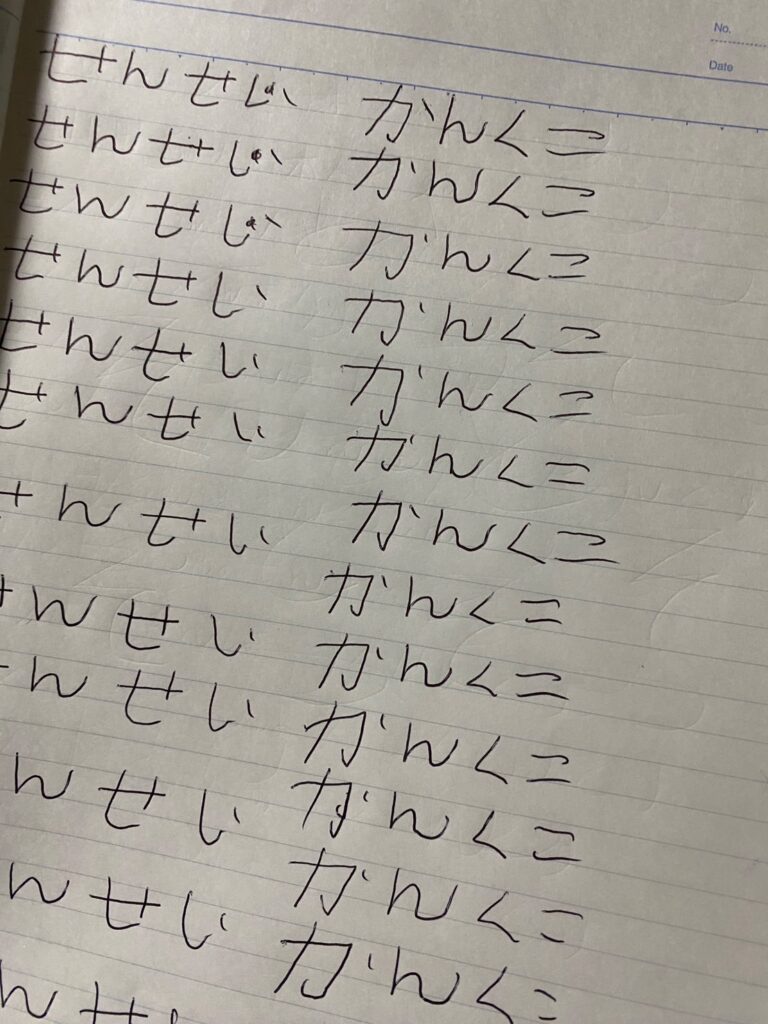 No.
Date
せんせい かんくこ
せんせい かんくこ
せんせい かんくこ
せんせい かんくこ
せんせい かんくこ
せんせい かんくこ
せんせい かんくこ
せんせい かんくこ
せんせい かんくこ
んせい かんくこ
んせい かんくこ
んせい かんくこ
かんくこ